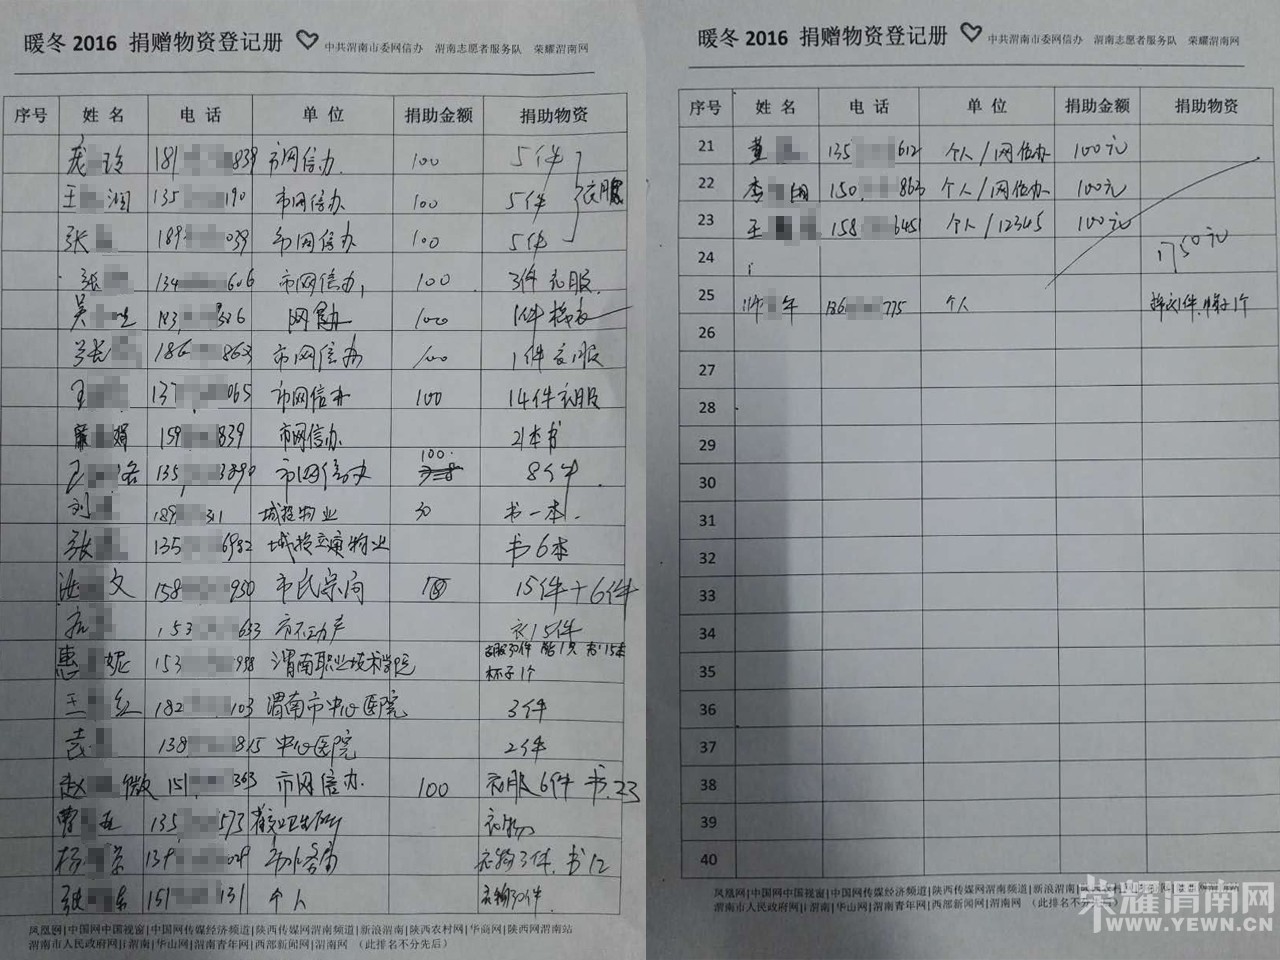 暖冬 2016 捐赠物资登记册 中共渭南市委网信办 渭南志愿者服务队 荣耀渭南网
序号 姓名 电话 单位 捐助金额 捐助物资
玲 181 839 市网信办 100 5件
王 润 135 190 市网信办 100 5件 衣服
张 189 039 市网信办 100 5件
张 134 606 市网信办 100 3件衣服
吴 326 100 1件
张 186 863 市网信办 100 1件衣服
王 137 065 市网信办 100 14件衣服
娟 159 839 市网信办 21本书
洛 135 市网信办 100 8件
刘 189 311 城投物业 书一本
张 135 6982 物业 书6本
文 158 950 市民宗局 15件+6件
153 633 市不动产 衣15件
惠 妮 153 998 渭南职业技术学院 书15本
杯子1个
王 红 182 103 渭南市中心医院 3件
袁 138 815 中心医院 2件
赵 微 151 363 市网信办 100 衣服6件 书23
曹 135 573 衣物
杨 139 029 衣物3件 书12
张 东 151 131 个人 衣物30件
凤凰网|中国网中国视窗|中国网传媒经济频道|陕西传媒网渭南频道|新浪渭南|陕西农村网|华商网|陕西网渭南站
渭南市人民政府网|i渭南|华山网|渭南青年网|西部新闻网|渭南网 （此排名不分先后）
暖冬 2016 捐赠物资登记册 中共渭南市委网信办 渭南志愿者服务队 荣耀渭南网
序号 姓名 电话 单位 捐助金额 捐助物资
21 董 135 612 个人/网信办 100元
22 李 150 863 个人/网信办 100元
23 王 158 6451 个人/12345 100元
24 1750元
25 年 136 775 个人
26
27
28
29
30
31
32
33
34
35
36
37
38
39
40
凤凰网|中国网中国视窗|中国网传媒经济频道|陕西传媒网渭南频道|新浪渭南
渭南市人民政府网|i渭南|华山网|渭南青年网|西部新闻网|渭南网 （此排名不分先后）
荣耀渭南网
WWW.YEWN.CN